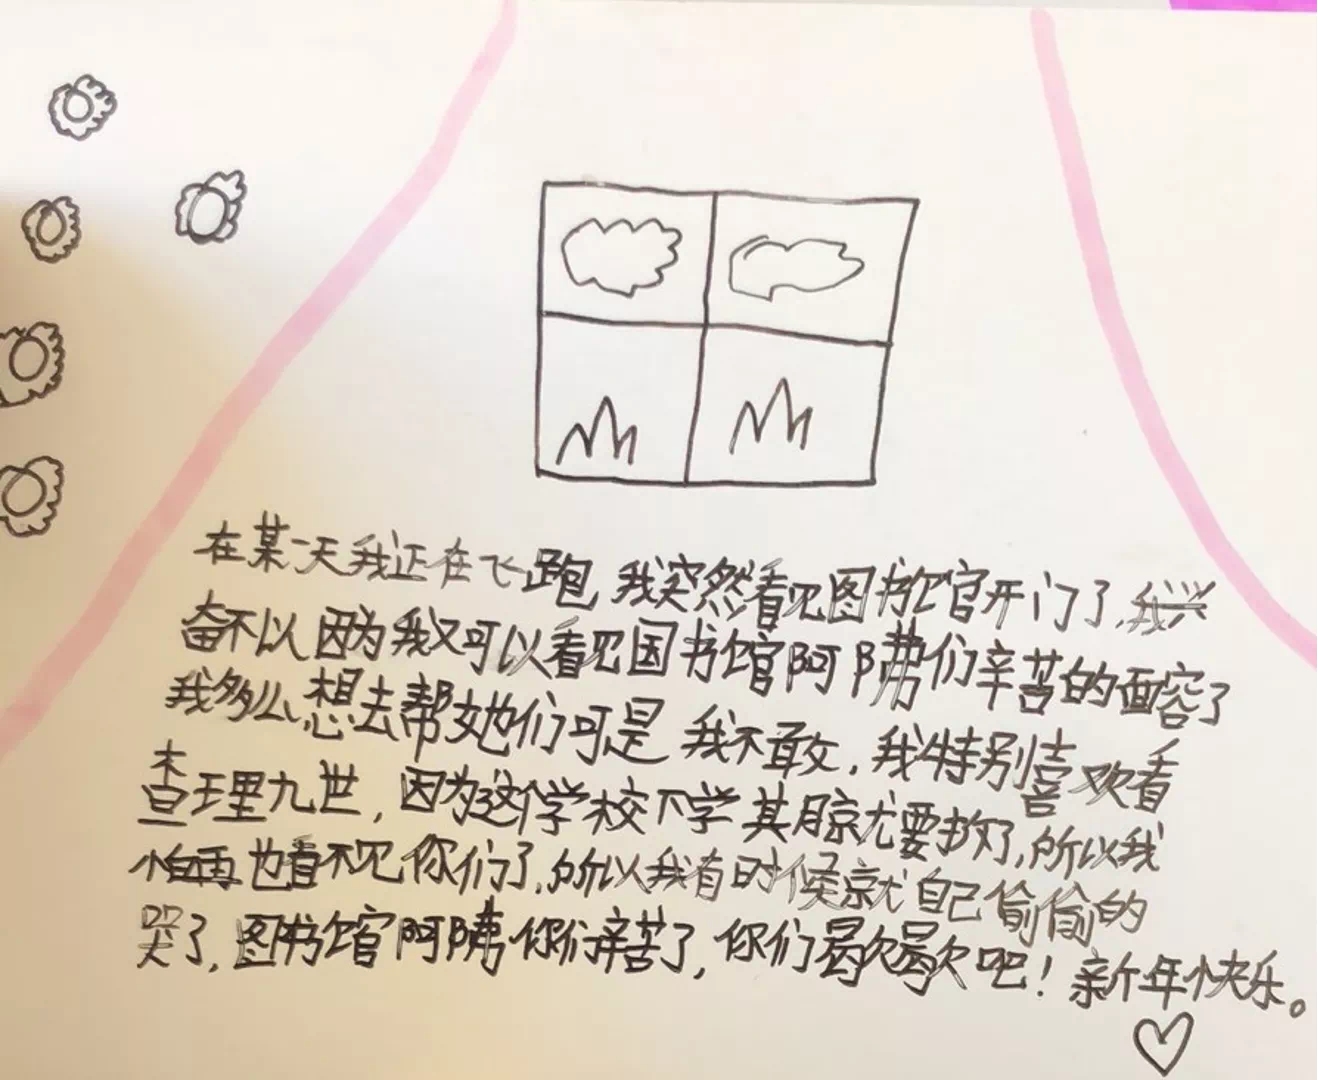 在某一天我正在飞跑,我突然看见图书馆开门了,我兴
奋不以因为我又可以看见图书馆阿姨们辛苦的面容了
我多么想去帮她们可是我不敢,我特别喜欢看
查理九世,因为这个学校下学其月就要放了,所以我
怕再也看不见你们了,所以我有时候就自己偷偷的
哭了,图书馆阿姨你们辛苦了,你们歇歇吧!新年快乐。